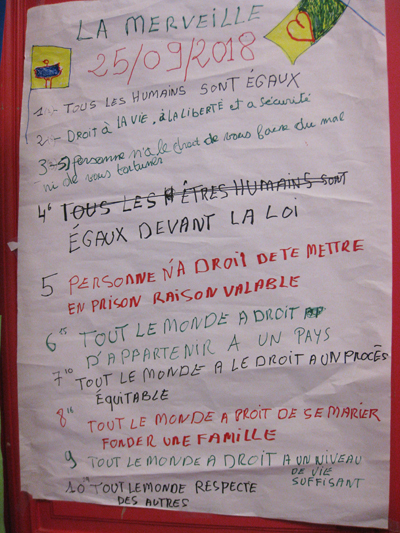 LA MERVEILLE
25/09/2018
1 - TOUS LES HUMAINS SONT ÉGAUX
2 - DROIT à LA VIE, à LA LIBERTÉ et a sécurité
3 - 5) personne n'a le droit de vous faire du mal
ni de vous torturer
4 TOUS LES ÊTRES HUMAINS SONT
ÉGAUX DEVANT LA LOI
5 PERSONNE N'A DROIT DE TE METTRE
EN PRISON RAISON VALABLE
6 15 TOUT LE MONDE A DROIT
D'APPARTENIR A UN PAYS
7 10 TOUT LE MONDE A LE DROIT A UN PROCÈS
ÉQUITABLE
8 16 TOUT LE MONDE A DROIT DE SE MARIER
FONDER UNE FAMILLE
9 TOUT LE MONDE A DROIT A UN NIVEAU
DE VIE
SUFFISANT
10 TOUT LE MONDE RESPECTE
DES AUTRES